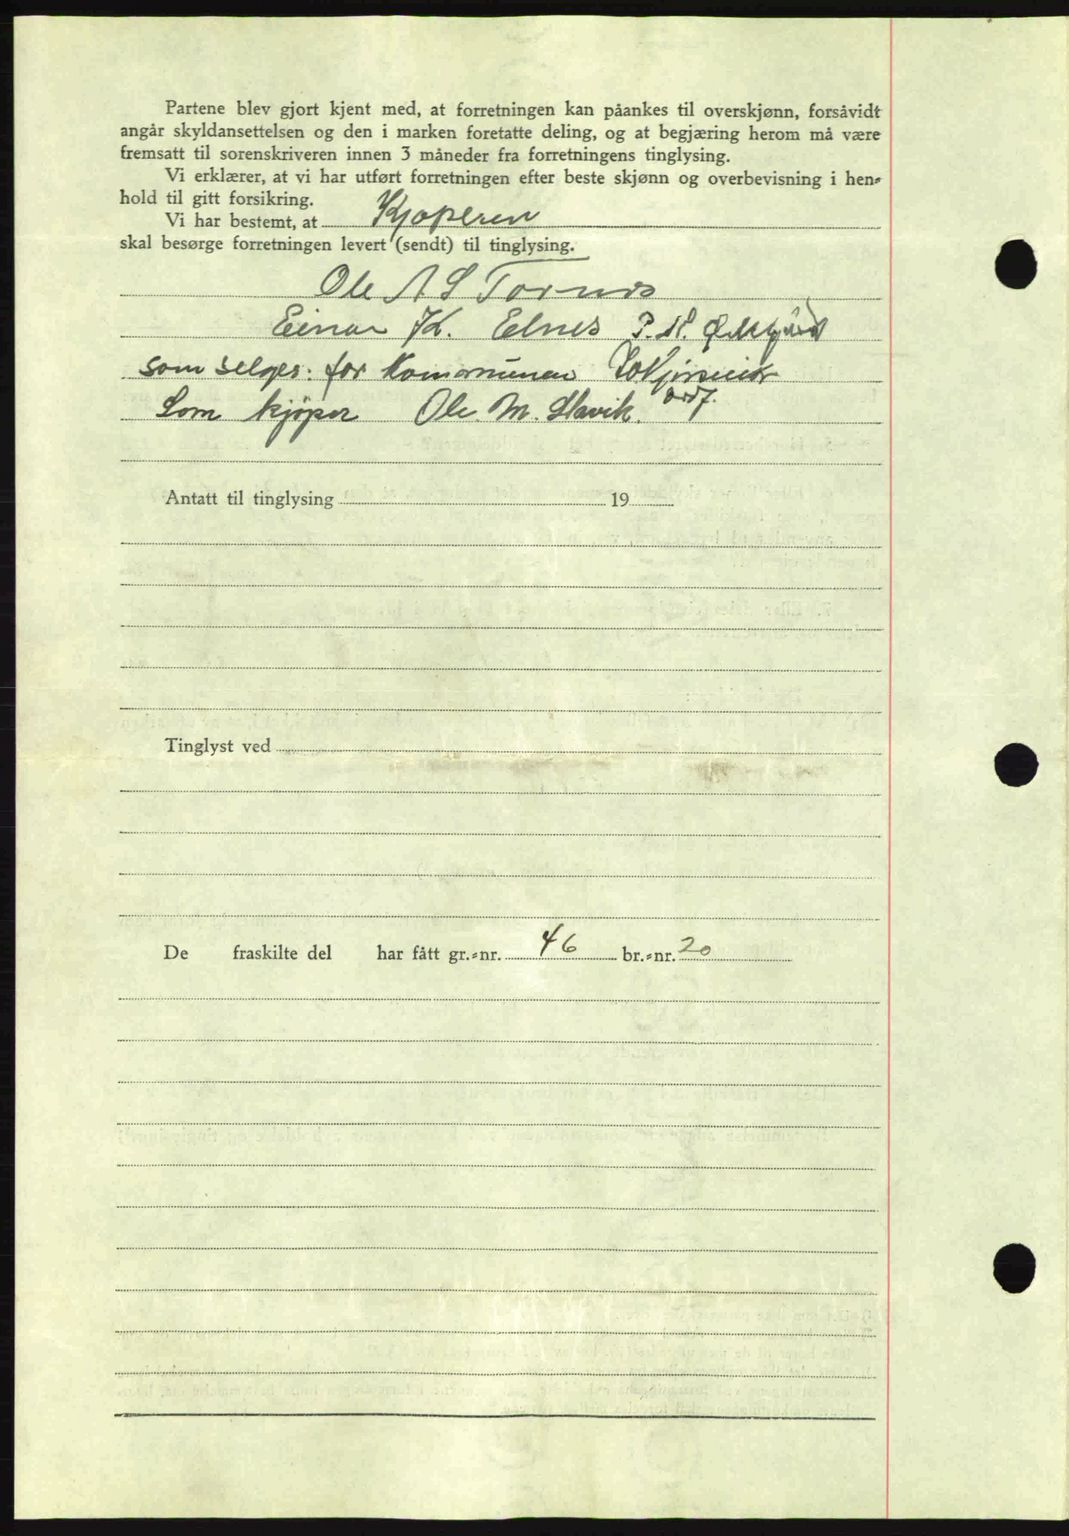 Partene blev gjort kjent med, at forretningen kan påankes til overskjønn, forsåvidt
angår skyldansettelsen og den i marken foretatte deling, og at begjæring herom må være
fremsatt til sorenskriveren innen 3 måneder fra forretningens tinglysing.
Vi erklærer, at vi har utført forretningen efter beste skjønn og overbevisning i hen-
hold til gitt forsikring.
Vi har bestemt, at Kjøperen
skal besørge forretningen levert (sendt) til tinglysing.
Ole A S Tornes
Einar K. Elnes P.
som selger: for Kommunen
ordf.
Som kjøper Ole M. Slavik.
Antatt til tinglysing 19
Tinglyst ved
De fraskilte del har fått gr.-nr. 46 br.-nr. 20